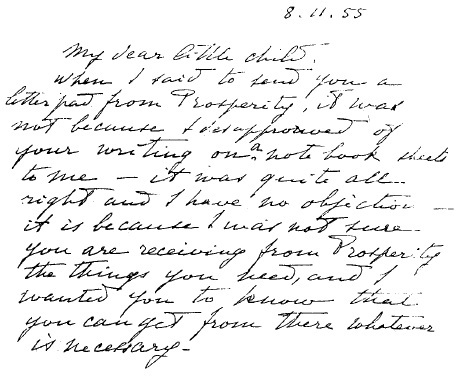 8.11.55
My dear little child,
When I said to send you a
letter pad from Prosperity, it was
not because I disapproved of
your writing on a note book sheets
to me – it was quite all
right and I have no objection –
it is because I was not sure
you are receiving from Prosperity
the things you need, and I
wanted you to know that
you can get from there whatever
is necessary –